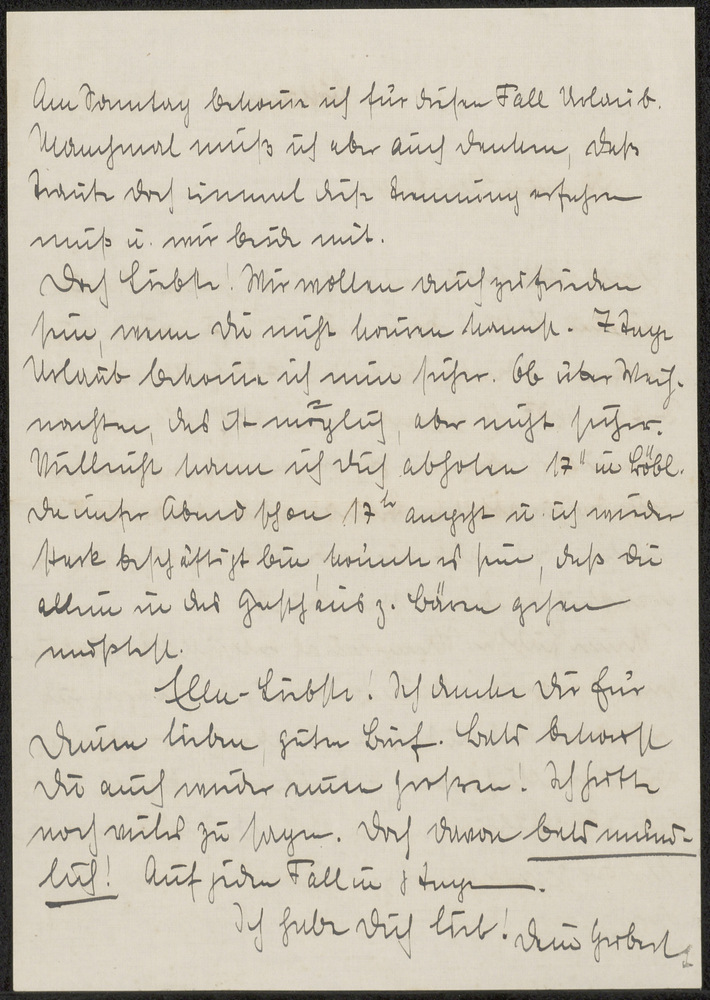 Am Sonntag bekomme ich für diesen Fall Urlaub.
Manchmal muß ich aber auch denken, daß
Traute doch einmal diese Trennung erfahren
muß u. wir beide mit.
Doch Liebste! Wir wollen auch zufrieden
sein, wenn Du nicht kommen kannst. 7 Tage
Urlaub bekomme ich nun sicher. Ob über Weih-
nachten, das ist möglich, aber nicht sicher.
Vielleicht kann ich Dich abholen 17 in Löbl.
Da unser Abend schon 17 angeht u. ich wieder
stark beschäftigt bin, könnte es sein, daß Du
allein in das Gasthaus z. Bären gehen
müßtest.
Ella-Liebste! Ich danke Dir für
Deinen lieben, guten Brief. Bald bekommst
Du auch wieder einen größeren! Ich hätte
noch vieles zu sagen. Doch davon bald münd-
lich! Auf jeden Fall in 8 Tagen.
Ich habe Dich lieb! Dein Herbert